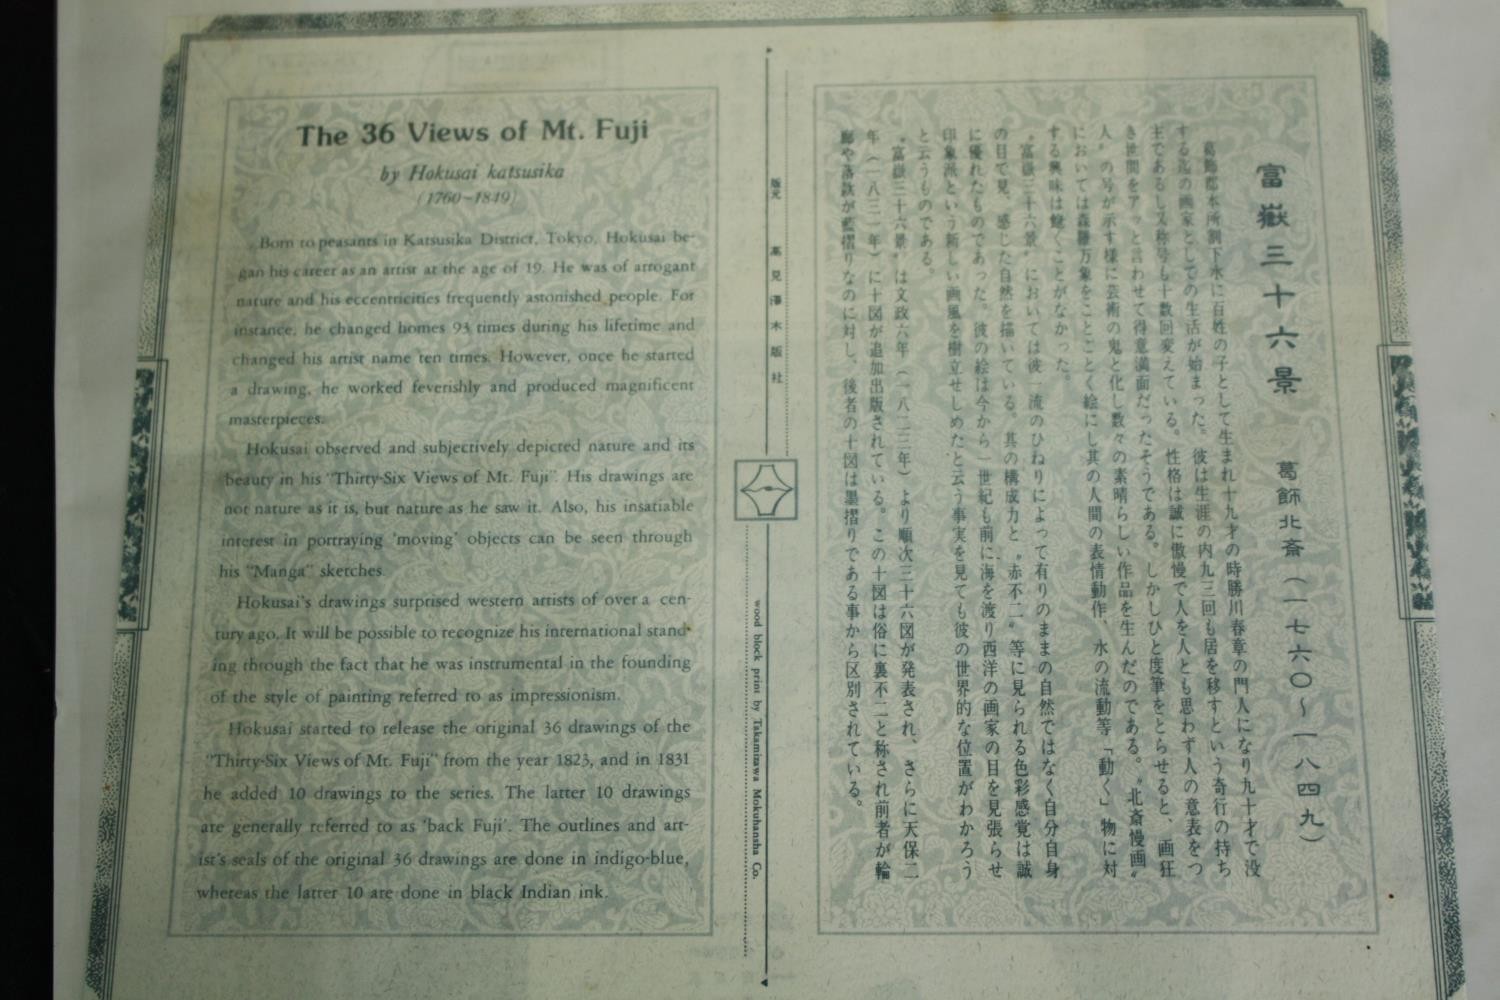 The 36 Views of Mt. Fuji
by Hokusai katsusika
(1760~1849)
Born to peasants in Katsusika District, Tokyo, Hokusai be-
gan his career as an artist at the age of 19. He was of arrogant
nature and his eccentricities frequently astonished people. For
instance, he changed homes 93 times during his lifetime and
changed his artist name ten times. However, once he started
a drawing, he worked feverishly and produced magnificent
masterpieces.
Hokusai observed and subjectively depicted nature and its
beauty in his "Thirty-Six Views of Mt. Fuji". His drawings are
not nature as it is, but nature as he saw it. Also, his insatiable
interest in portraying 'moving' objects can be seen through
his "Manga" sketches.
Hokusai's drawings surprised western artists of over a cen-
tury ago. It will be possible to recognize his international stand-
ing through the fact that he was instrumental in the founding
of the style of painting referred to as impressionism.
Hokusai started to release the original 36 drawings of the
"Thirty-Six Views of Mt. Fuji" from the year 1823, and in 1831
he added 10 drawings to the series. The latter 10 drawings
are generally referred to as 'back Fuji'. The outlines and art-
ist's seals of the original 36 drawings are done in indigo-blue,
whereas the latter 10 are done in black Indian ink.
版元 高見澤木版社
wood block print by Takamizawa Mokuhansha Co.
富嶽三十六景 葛飾北斎(一七六〇〜一八四九)
葛飾郡本所割下水に百姓の子として生まれ十九才の時勝川春章の門人になり九十才で没
する迄の画家としての生活が始まった。彼は生涯の内九三回も居を移すという奇行の持ち
主であるし又称号も十数回変えている。性格は誠に傲慢で人を人とも思わず人の意表をつ
き世間をアッと言わせて得意満面だったそうである。しかしひと度筆をとらせると、画狂
人〟の号が示す様に芸術の鬼と化し数々の素晴らしい作品を生んだのである。〝北斎慢画〟
においては森羅万象をことごとく絵にし其の人間の表情動作、水の流動等「動く」物に対
する興味は飽くことがなかった。
〝富嶽三十六景〟においては彼一流のひねりによって有りのままの自然ではなく自分自身
の目で見、感じた自然を描いている。其の構成力と〝赤不二〟等に見られる色彩感覚は誠
に優れたものであった。彼の絵は今から一世紀も前に海を渡り西洋の画家の目を見張らせ
印象派という新しい画風を樹立せしめたと云う事実を見ても彼の世界的な位置がわかろう
と云うものである。
〝富嶽三十六景〟は文政六年(一八二三年)より順次三十六図が発表され、さらに天保二
年(一八三一年)に十図が追加出版されている。この十図は俗に裏不二と称され前者が輪
郭や落款が藍摺りなのに対し、後者の十図は墨摺りである事から区別されている。